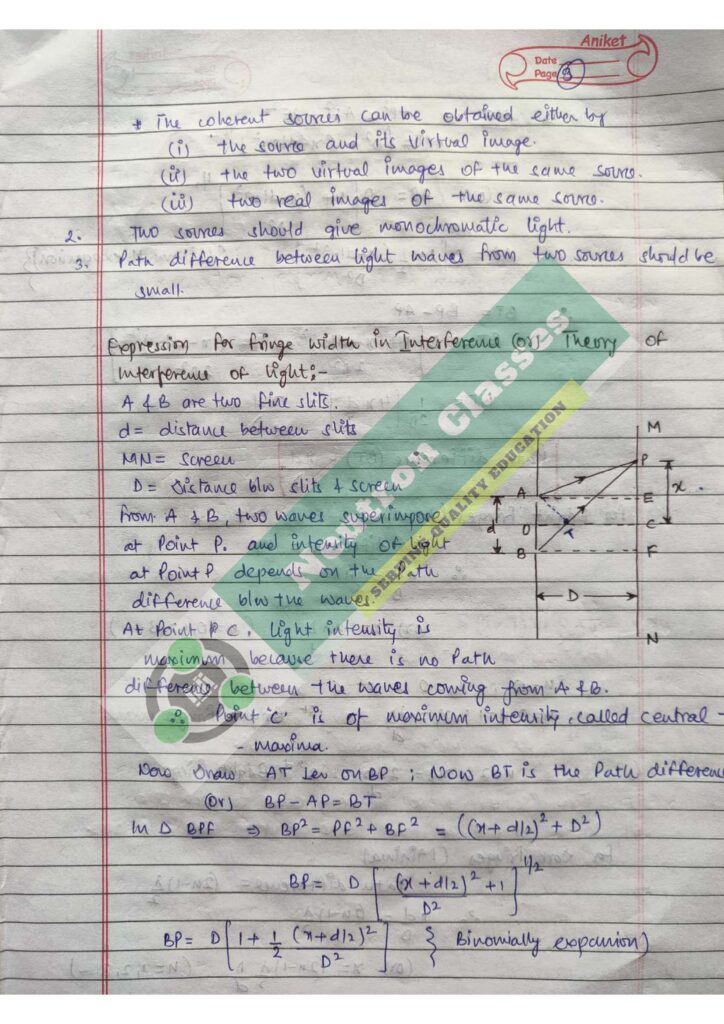 Aniket
Date
Page 3
* The coherent sources can be obtained either by
(i) the source and its virtual image.
(ii) the two virtual images of the same source.
(iii) two real images of the same source.
2. Two sources should give monochromatic light.
3. Path difference between light waves from two sources should be
small.
Expression for fringe width in Interference (or) Theory of
interference of light:-
A & B are two fine slits.
d = distance between slits
MN = screen
D = Distance b/w slits & screen
from A & B, two waves superimpose
at Point P. and intensity of light
at Point P depends on the Path
difference b/w the waves.
At Point C, light intensity is
maximum because there is no Path
difference between the waves coming from A & B.
Point 'C' is of maximum intensity, called central-
- maxima.
Now Draw AT ler on BP ; Now BT is the Path difference
(or) BP - AP = BT
In D BPF ⇒ BP² = PF² + BF² = ((x + d/2)² + D²)
BP = D [ (x + d/2)² / D² + 1 ]^1/2
BP = D [ 1 + 1/2 (x + d/2)² / D² ] { Binomially expansion)
M
P
A
E
x
d
O
T
C
B
F
D
N
Neutron Classes
SERVING QUALITY EDUCATION